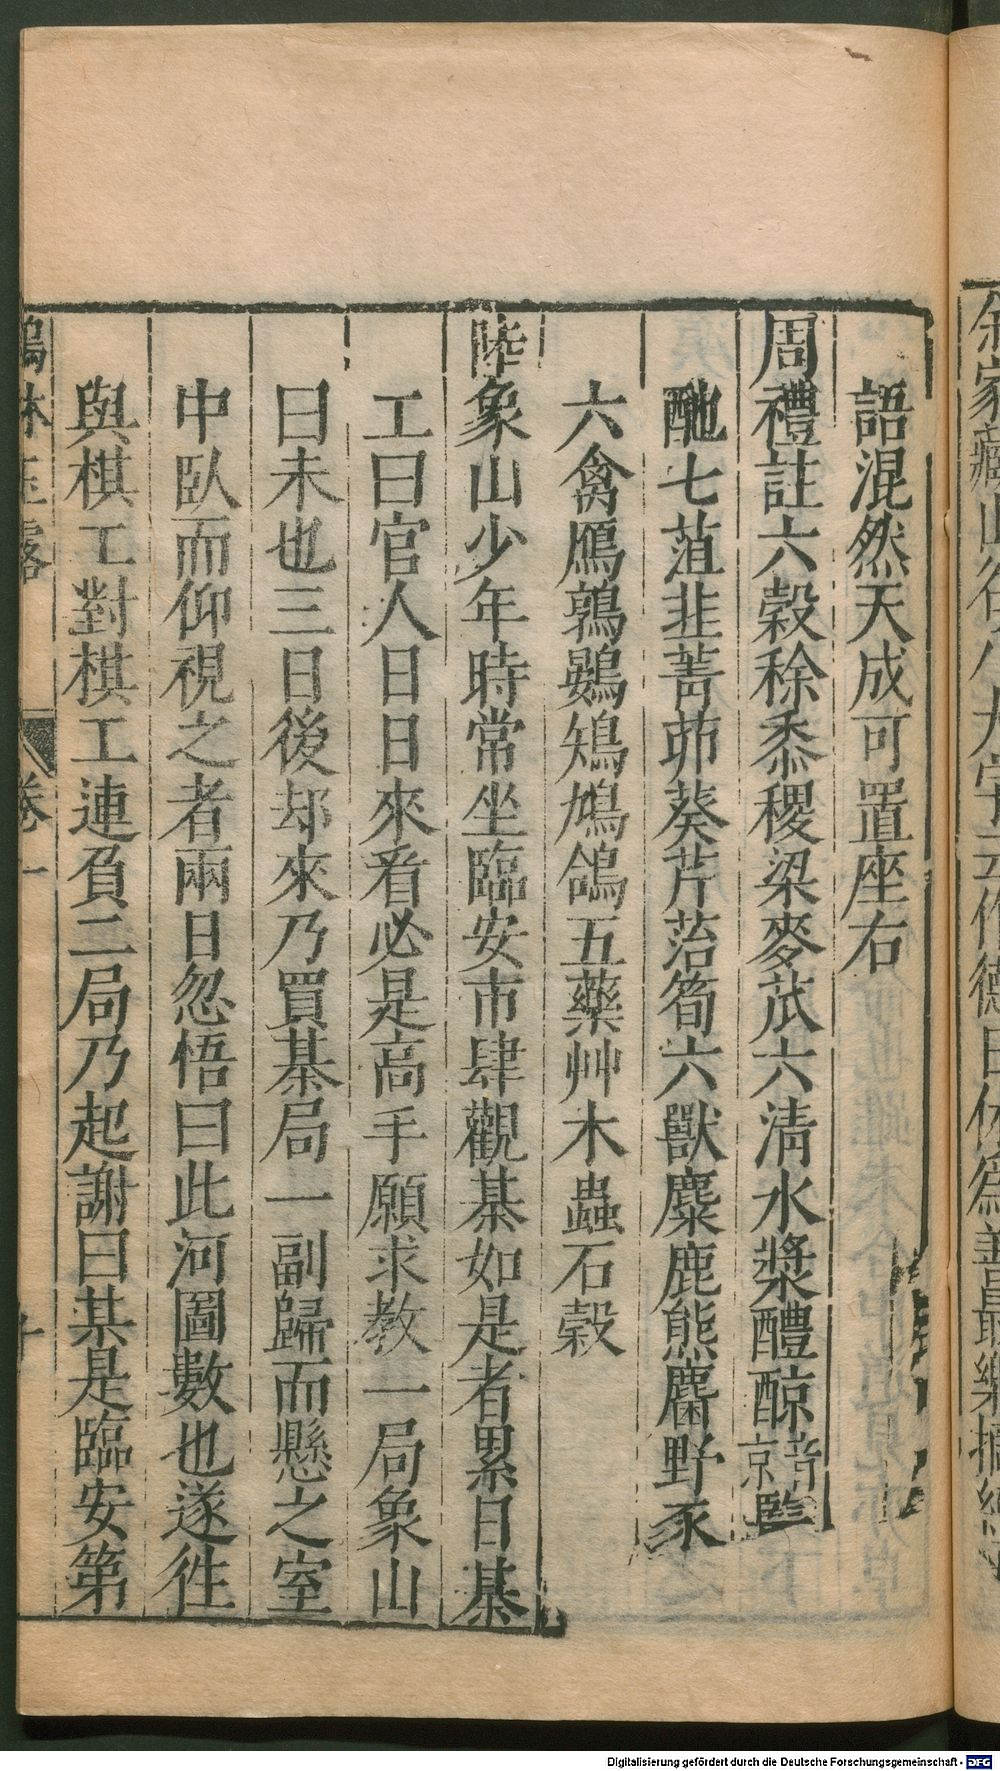 語混然天成可置座右
周禮註六穀稌黍稷梁麥苽六清水漿醴䣼音京醫
酏七菹韭菁茆葵芹菭筍六獸麋鹿熊麕野豕
六禽鴈鶉鷃雉鳩鴿五藥艸木蟲石穀
陸象山少年時常坐臨安市肆觀棊如是者累日棊
工曰官人日日來看必是高手願求教一局象山
曰未也三日後却來乃買棊局一副歸而懸之室
中臥而仰視之者兩日忽悟曰此河圖數也遂徃
與棋工對棋工連負二局乃起謝曰某是臨安第
鶴林玉露 卷十一 十
Digitalisierung gefördert durch die Deutsche Forschungsgemeinschaft - DFG